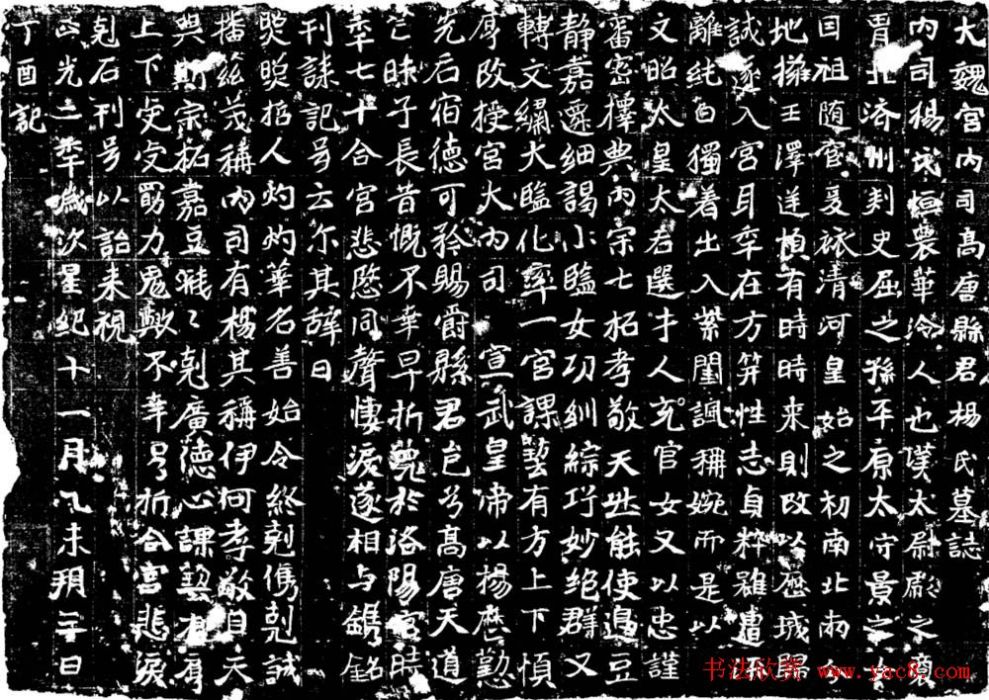 大魏宮內司高唐縣君楊氏墓誌
內司楊氏恒農華泠人也漢太尉彪之裔
胄北济州刾史屈之孫平原太守景之
因祖随宦爰旅清河皇始之初南北兩
地擁王澤逆楨有時時来則改以歷城歸
誠遂入宮耳年在方笄性志貞粹雖遭
離純白獨着出入紫閨諷稱婉而是以
文昭太皇太后選才人充官女又以忠謹
審密擇典內宗七祏孝敬天然能使邉豆
静嘉遷細謁小監女功紃綜巧妙绝群又
轉文繡大監化率一宮課藝有方上下慎
厚改授宮大內司宣武皇帝以楊歷勤
先后宿德可矜賜爵縣君邑兮高唐天道
芒昧子長昔慨不幸早折薨於洛陽宮時
年七十合宮悲慜同聲悽淚遂相与鐫銘
刊誄記号云尒其辞曰
爕爕㧞人灼灼華名善始令終剋儁剋誠
播兹茂稱內司有楊其稱伊何孝敬自天
典斯宗祏嘉豆濈濈剋廣德心課藝有肩
上下受安罰力鬼斁不幸号折合宮悲淚
剋石刊号以詒未視
正光二年歲次星紀十一月乙未朔三日
丁酉記
书法欣赏 www.yac8.com